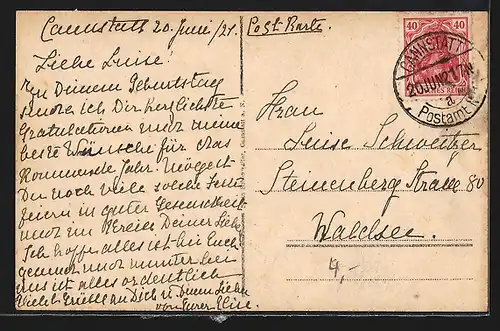 Cannstatt 20. Juni/21.
Post-Karte.
Liebe Luise!
Zu Deinem Geburtstag
senden ich Dir herzlichste
Gratulationen und meine
beste Wünsche für das
kommende Jahr. Mögest
Du noch viele solche Feste
feiern in guter Gesundheit
und im Kreise Deiner Lieben
Ich hoffe alles ist bei Euch
gesund und munter bei
uns ist alles ordentlich
Viele Grüße an Dich u. Deine Lieben
von Eurer Elise.
40 40
DEUTSCHES REICH
CANNSTATT
20 JUN 21
a
Postamt
Frau
Luise Schweitzer
Steinenberg Strasse 80
Waldsee.
4,-